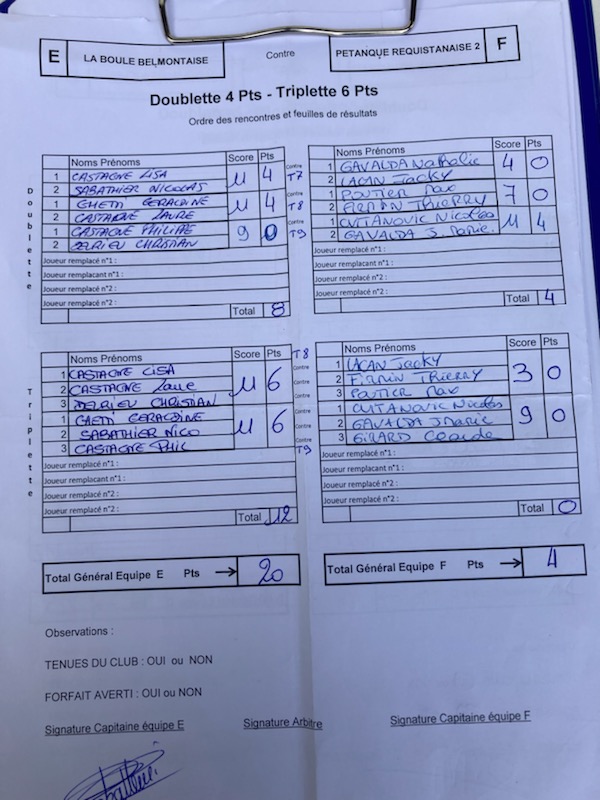 E LA BOULE BELMONTAISE Contre PETANQUE REQUISTANAISE 2 F
Doublette 4 Pts - Triplette 6 Pts
Ordre des rencontres et feuilles de résultats
Doublette
Noms Prénoms Score Pts
1 CASTAGNE LISA 11 4
2 SABATHIER NICOLAS
1 GHETTI GERALDINE 11 4
2 CASTAGNE LAURE
1 CASTAGNE PHILIPPE 9 0
2 DELRIEU CHRISTIAN
Joueur remplacé n°1 :
Joueur remplacant n°1 :
Joueur remplacé n°2 :
Joueur remplacé n°2 :
Total 8
Contre
T7
Contre
T8
Contre
T9
Noms Prénoms Score Pts
1 GAVALDA Nathalie 4 0
2 LACAN Jacky
1 POUTIER Max 7 0
2 FIRMIN THIERRY
1 CVITANOVIC Nicolas 11 4
2 GAVALDA J. Marie
Joueur remplacé n°1 :
Joueur remplacant n°1 :
Joueur remplacé n°2 :
Joueur remplacé n°2 :
Total 4
Triplette
Noms Prénoms Score Pts
1 CASTAGNE LISA 11 6
2 CASTAGNE Laure
3 DELRIEU CHRISTIAN
1 GHETTI GERALDINE 11 6
2 SABATHIER NICO
3 CASTAGNE PHIL
Joueur remplacé n°1 :
Joueur remplacant n°1 :
Joueur remplacé n°2 :
Joueur remplacé n°2 :
Total 12
T8
Contre
Contre
Contre
Contre
T9
Noms Prénoms Score Pts
1 LACAN Jacky 3 0
2 FIRMIN THIERRY
3 POUTIER Max
1 CVITANOVIC Nicolas 9 0
2 GAVALDA JMarie
3 GIRARD Claude
Joueur remplacé n°1 :
Joueur remplacant n°1 :
Joueur remplacé n°2 :
Joueur remplacé n°2 :
Total 0
Total Général Equipe E Pts → 20
Total Général Equipe F Pts → 4
Observations :
TENUES DU CLUB : OUI ou NON
FORFAIT AVERTI : OUI ou NON
Signature Capitaine équipe E Signature Arbitre Signature Capitaine équipe F